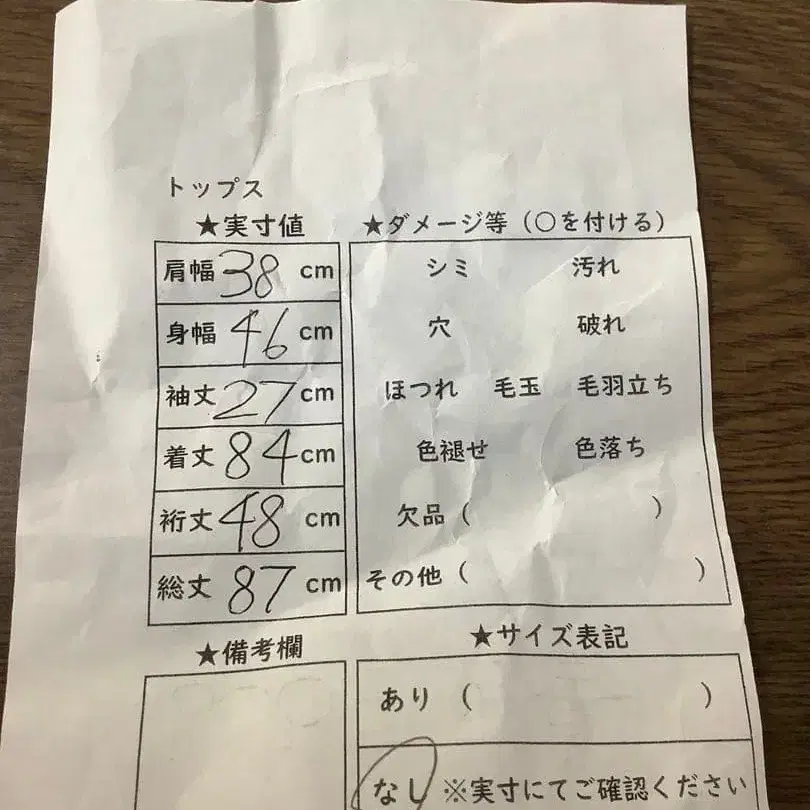 トップス
★実寸値
肩幅 38 cm
身幅 46 cm
袖丈 27 cm
着丈 84 cm
裄丈 48 cm
総丈 87 cm
★ダメージ等（〇を付ける）
シミ 汚れ
穴 破れ
ほつれ 毛玉 毛羽立ち
色褪せ 色落ち
欠品（ ）
その他（ ）
★備考欄
★サイズ表記
あり（ ）
なし ※実寸にてご確認ください